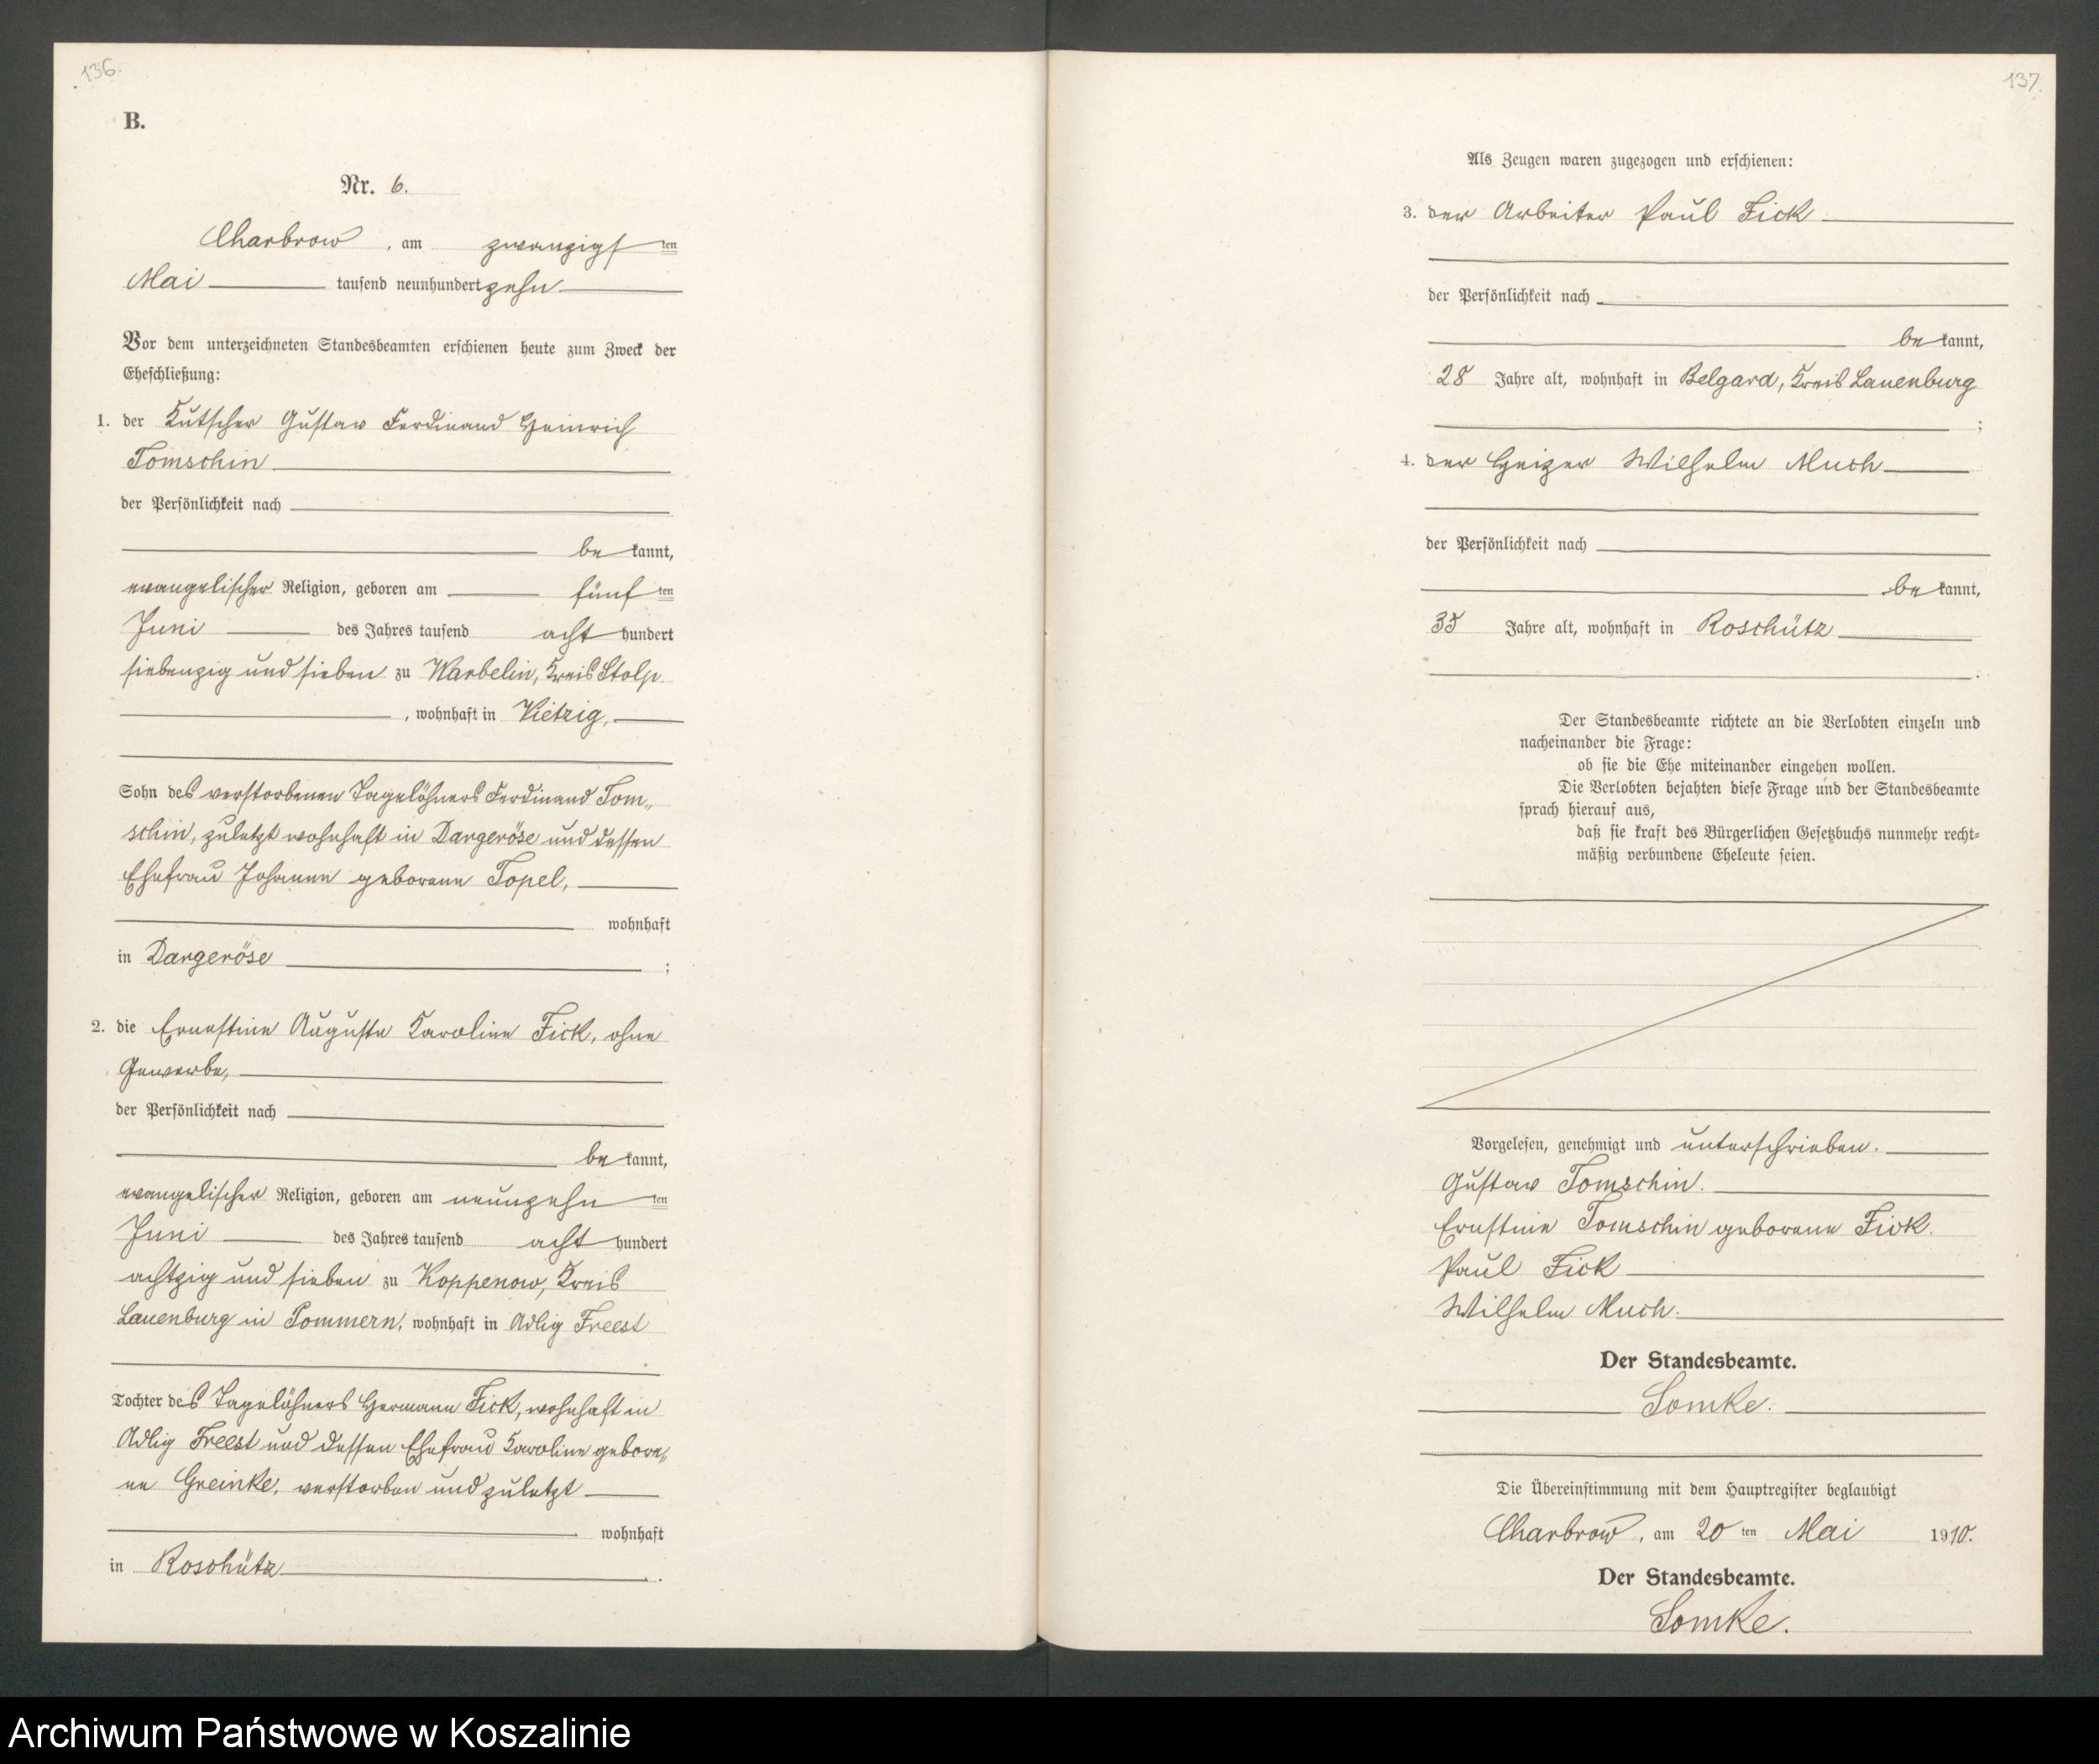 136.
B.
Nr. 6.
Charbrow, am zwanzigsten
Mai tausend neunhundert zehn
Vor dem unterzeichneten Standesbeamten erschienen heute zum Zweck der
Eheschließung:
1. der Kutscher Gustav Ferdinand Heinrich
Tomschin
der Persönlichkeit nach
be kannt,
evangelischer Religion, geboren am fünf ten
Juni des Jahres tausend acht hundert
siebenzig und sieben zu Warbelin, Kreis Stolp
, wohnhaft in Vietzig,
Sohn des verstorbenen Tagelöhners Ferdinand Tom„
schin, zuletzt wohnhaft in Dargeröse und dessen
Ehefrau Johanne geborene Topel,
wohnhaft
in Dargeröse ;
2. die Ernestine Auguste Karoline Fick, ohne
Gewerbe,
der Persönlichkeit nach
be kannt,
evangelischer Religion, geboren am neunzehn ten
Juni des Jahres tausend acht hundert
achtzig und sieben zu Koppenow, Kreis
Lauenburg in Pommern, wohnhaft in Adlig Freest
Tochter des Tagelöhners Hermann Fick, wohnhaft in
Adlig Freest und dessen Ehefrau Karoline gebore„
ne Greinke, verstorben und zuletzt
wohnhaft
in Roschütz .
137.
Als Zeugen waren zugezogen und erschienen:
3. der Arbeiter Paul Fick
der Persönlichkeit nach
be kannt,
28 Jahre alt, wohnhaft in Belgard, Kreis Lauenburg
;
4. der Heizer Wilhelm Much
der Persönlichkeit nach
be kannt,
35 Jahre alt, wohnhaft in Roschütz
.
Der Standesbeamte richtete an die Verlobten einzeln und
nacheinander die Frage:
ob sie die Ehe miteinander eingehen wollen.
Die Verlobten bejahten diese Frage und der Standesbeamte
sprach hierauf aus,
daß sie kraft des Bürgerlichen Gesetzbuchs nunmehr recht-
mäßig verbundene Eheleute seien.
Vorgelesen, genehmigt und unterschrieben.
Gustav Tomschin.
Ernstine Tomschin geborene Fick.
Paul Fick
Wilhelm Much.
Der Standesbeamte.
Lomke.
Die Übereinstimmung mit dem Hauptregister beglaubigt
Charbrow, am 20 ten Mai 1910.
Der Standesbeamte.
Lomke.
Archiwum Państwowe w Koszalinie